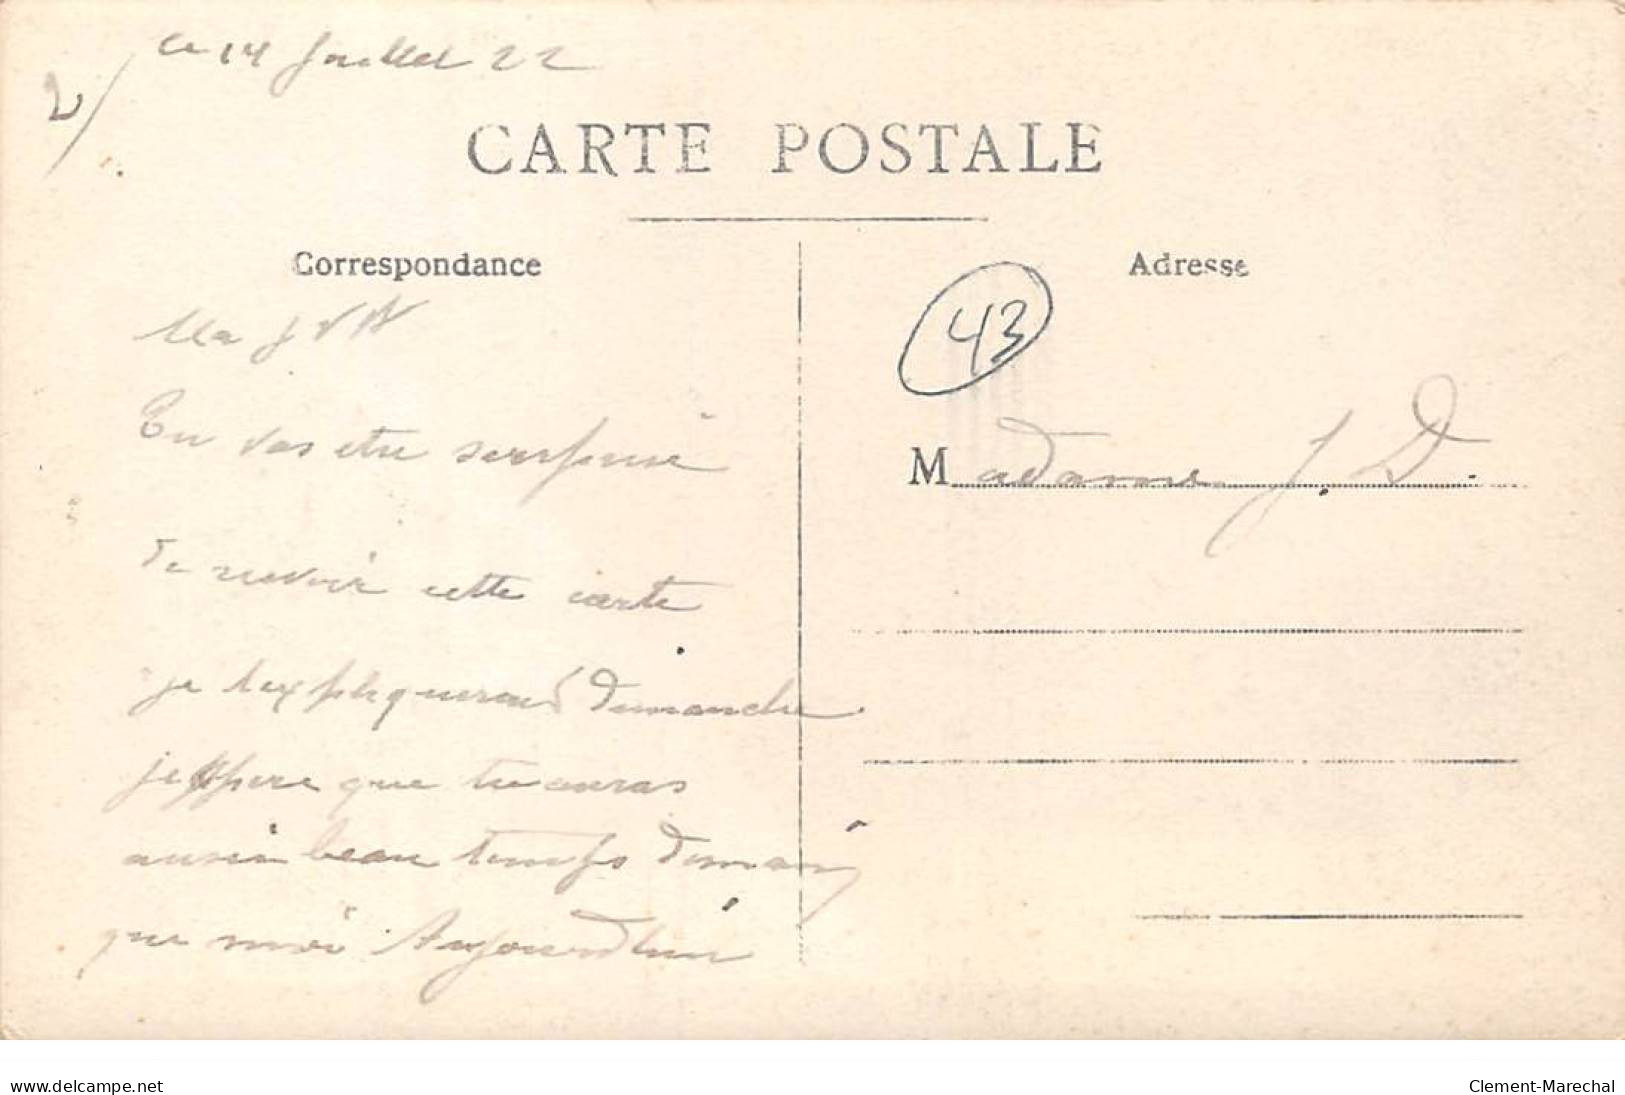 Ce 14 Juillet 22
CARTE POSTALE
Correspondance
Ma
Tu vas etre surprise
de recevoir cette carte
je texpliquerai Dimanche
jespere que tu auras
aussi beau temps demain
que moi Aujourdhui
Adresse
43
Madame J. D.
www.delcampe.net
Clement-Marechal